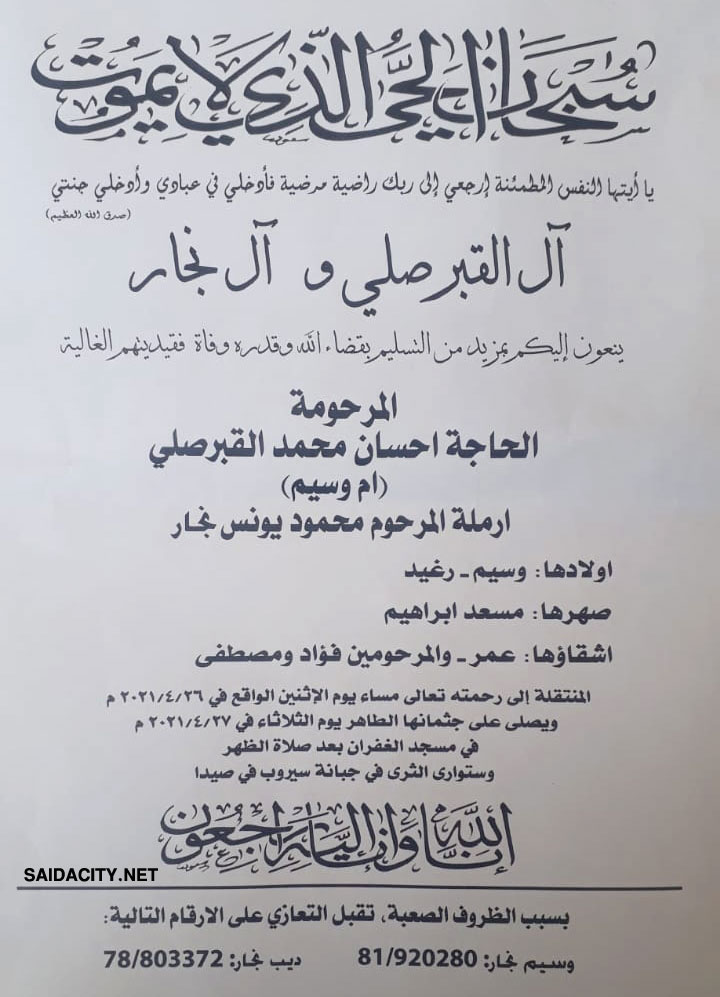 سبحان الحي الذي لا يموت
يا أيتها النفس المطمئنة إرجعي إلى ربك راضية مرضية فأدخلي في عبادي وأدخلي جنتي
(صدق الله العظيم)
آل القبرصلي و آل نجار
ينعون إليكم بمزيد من التسليم بقضاء الله وقدره وفاة فقيدتهم الغالية
المرحومة
الحاجة احسان محمد القبرصلي
(ام وسيم)
ارملة المرحوم محمود يونس نجار
اولادها: وسيم - رغيد
صهرها: مسعد ابراهيم
اشقاؤها: عمر - والمرحومين فؤاد ومصطفى
المنتقلة إلى رحمته تعالى مساء يوم الإثنين الواقع في ٢٠٢١/٤/٢٦ م
ويصلى على جثمانها الطاهر يوم الثلاثاء في ٢٠٢١/٤/٢٧ م
في مسجد الغفران بعد صلاة الظهر
وستوارى الثرى في جبانة سيروب في صيدا
إنا لله وإنا إليه راجعون
SAIDACITY.NET
بسبب الظروف الصعبة، تقبل التعازي على الارقام التالية:
وسيم نجار: 81/920280 ديب نجار: 78/803372